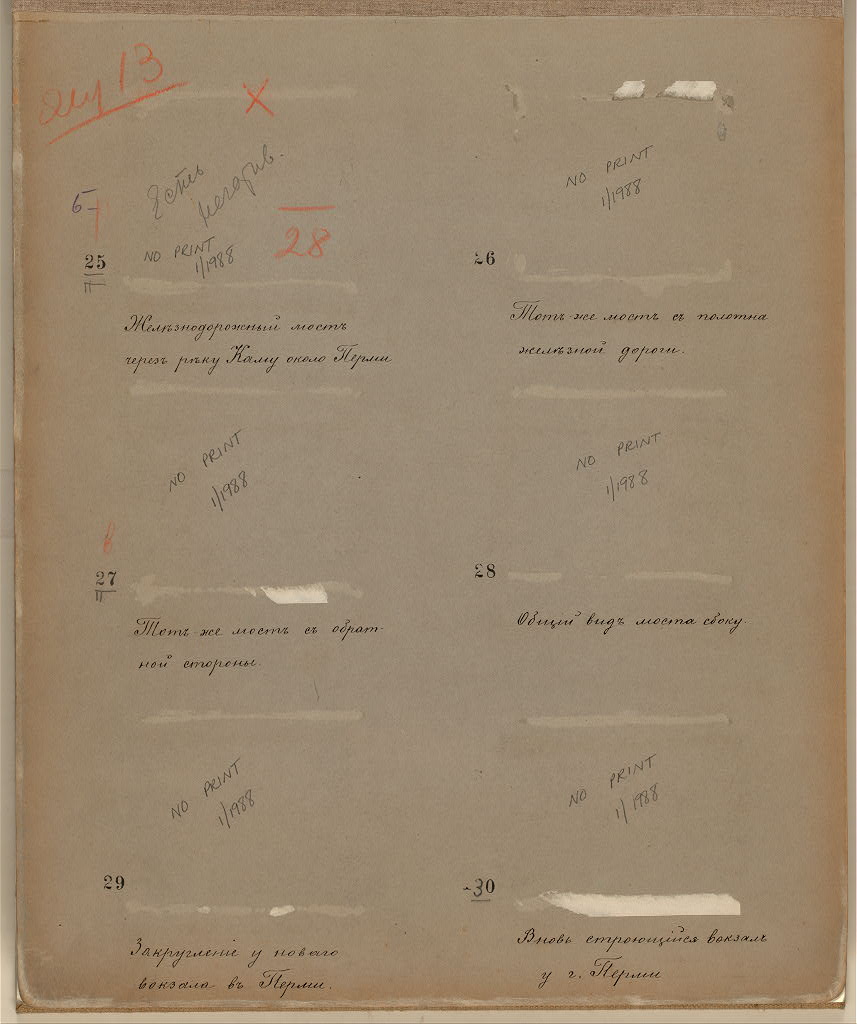 13
X
Есть
негатив.
5
NO PRINT
1/1988
28
25
II
Желѣзнодорожный мостъ
черезъ рѣку Каму около Перми
NO PRINT
1/1988
26
Тотъ-же мостъ съ полотна
желѣзной дороги.
NO PRINT
1/1988
в
27
II
Тотъ-же мостъ съ обрат-
ной стороны.
NO PRINT
1/1988
28
Общій видъ моста сбоку.
NO PRINT
1/1988
29
Закругленіе у новаго
вокзала въ Перми.
NO PRINT
1/1988
30
Вновь строющійся вокзалъ
у г. Перми